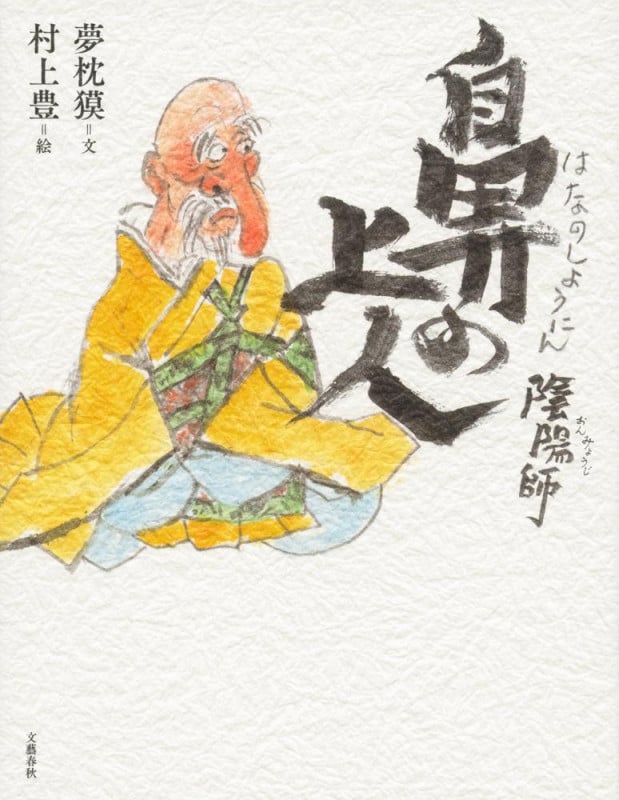 鼻の上人
はなのしょうにん
陰陽師
おんみょうじ
夢枕獏=文
村上豊=絵
文藝春秋